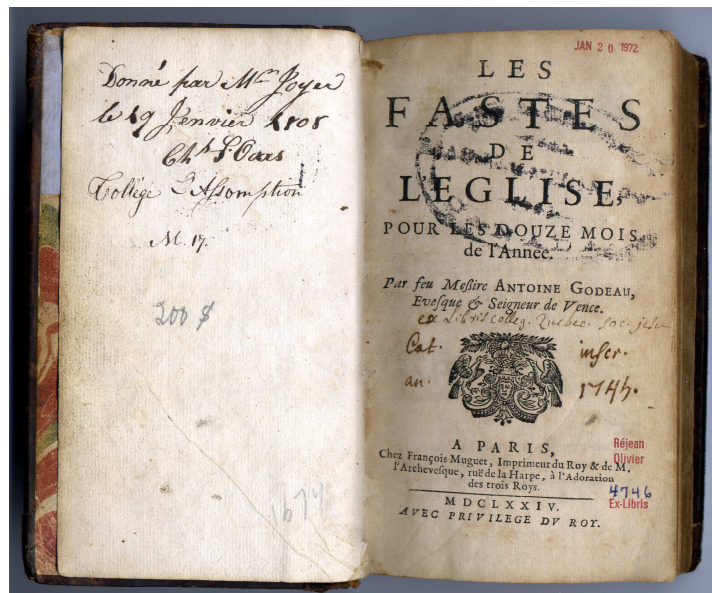 Donné par Mr Joyer
le 19 Janvier
Collège L'Assomption
M. 17.
200 $
1674
JAN 20 1972
LES
FASTES
DE
L'EGLISE,
POUR LES DOUZE MOIS
de l'Année.
Par feu Meßire ANTOINE GODEAU,
Evesque & Seigneur de Vence.
ex Libris colleg. Quebec. soc. jesu
Cat. inscr.
an. 1745.
A PARIS,
Chez François Muguet, Imprimeur du Roy & de M.
l'Archevesque, ruë de la Harpe, à l'Adoration
des trois Roys.
MDCLXXIV.
AVEC PRIVILEGE DV ROY.
Réjean
Olivier
4746
Ex-Libris